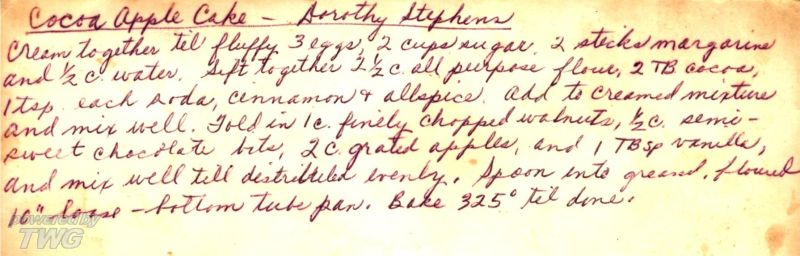 Cocoa Apple Cake - Dorothy Stephens
Cream together til fluffy 3 eggs, 2 cups sugar, 2 sticks margarine
and 1/2 c. water. Sift together 2 1/2 c. all purpose flour, 2 TB cocoa,
1 tsp. each soda, cinnamon & allspice. Add to creamed mixture
and mix well. Fold in 1 c. finely chopped walnuts, 1/2 c. semi-
sweet chocolate bits, 2 c. grated apples, and 1 TBsp vanilla,
and mix well till distributed evenly. Spoon into greased, floured
10" loose-bottom tube pan. Bake 325° til done.
powered by
TWG